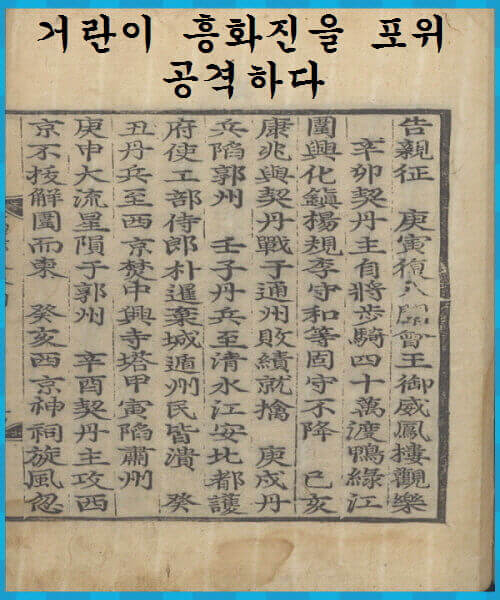 거란이 흥화진을 포위
공격하다
告親征 庚寅復八關會王御威鳳樓觀樂
辛卯契丹主自將步騎四十萬渡鴨綠江
圍興化鎭楊規李守和等固守不降 己亥
康兆與契丹戰于通州敗績就擒 庚戌丹
兵陷郭州 壬子丹兵至淸水江安北都護
府使工部侍郎朴暹棄城遁州民皆潰 癸
丑丹兵至西京焚中興寺塔甲寅陷肅州
庚申大流星隕于郭州 辛酉契丹主攻西
京不拔解圍而東 癸亥西京神祠旋風忽